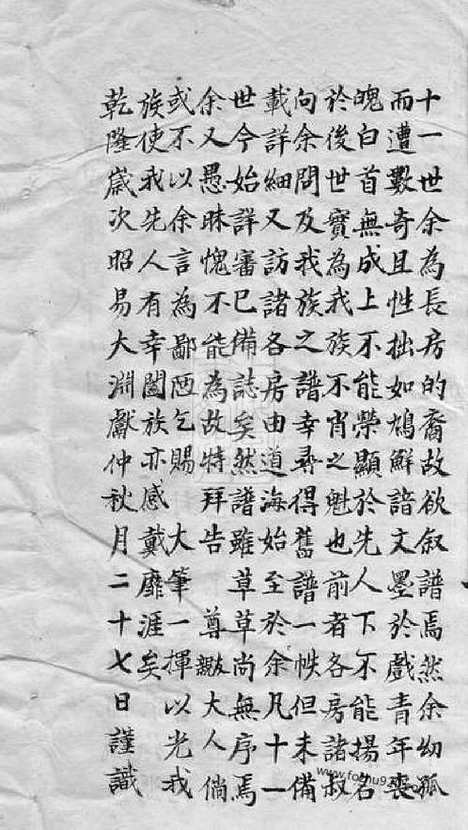 十一世余為長房的裔故欲叙譜焉然余幼孤
而遭數奇且性拙如鳩鮮諳文墨於戲青年喪
魄白首無成上不能榮顯於先人下不能揚名
於後世寶為我族不肖之魁也前者各房諸叔
向余問及我族之譜幸尋得舊譜一帙但未備
載詳細又訪諸各房由道海始至於余凡十一
世今始詳審已備誌矣然譜雖草草尚無序焉
余又愚昧愧不能為故特拜告 尊大人倘
或不以余言為鄙陋乞賜 大筆一揮以光我
族使我先人有幸闔族亦感戴靡涯矣
乾隆歲次昭易大淵獻仲秋月二十七日謹識